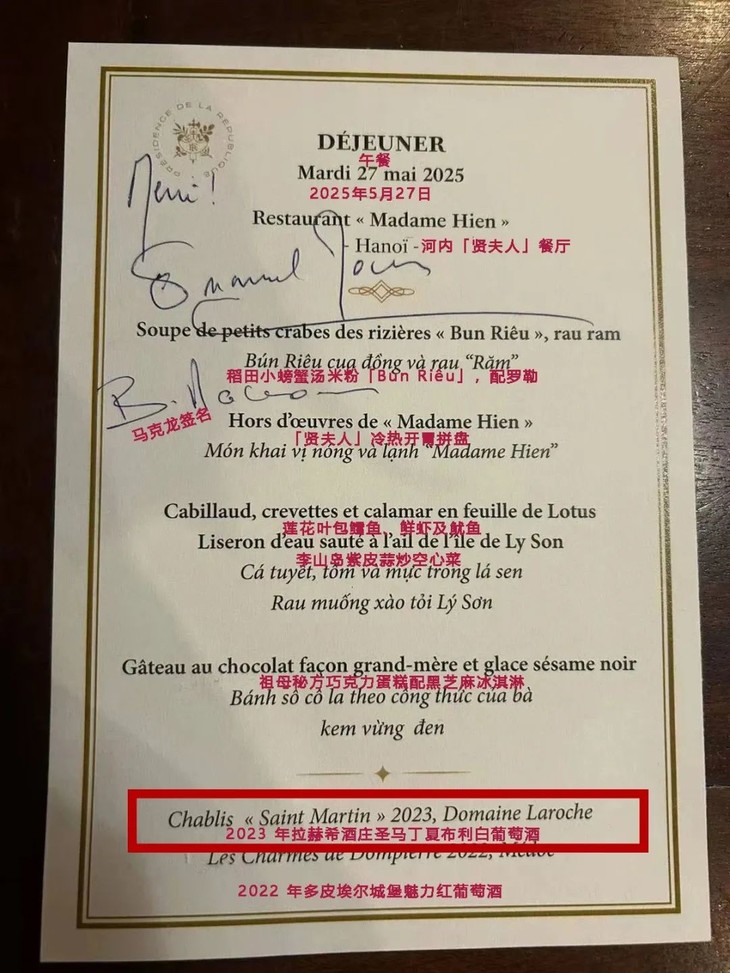 PRÉSIDENCE DE LA RÉPUBLIQUE
DÉJEUNER
午餐
Mardi 27 mai 2025
2025年5月27日
Merci!
Restaurant « Madame Hien »
- Hanoï -河内「贤夫人」餐厅
Emmanuel
Soupe de petits crabes des rizières « Bun Riêu », rau ram
Bún Riêu cua đồng và rau “Răm”
稻田小螃蟹汤米粉「Bun Riêu」, 配罗勒
B. Macron
马克龙签名
Hors d’œuvres de « Madame Hien »
「贤夫人」冷热开胃拼盘
Món khai vị nóng và lạnh “Madame Hien”
Cabillaud, crevettes et calamar en feuille de Lotus
莲花叶包鳕鱼、鲜虾及鱿鱼
Liseron d’eau sauté à l’ail de l’île de Ly Son
李山岛紫皮蒜炒空心菜
Cá tuyết, tôm và mực trong lá sen
Rau muống xào tỏi Lý Sơn
Gâteau au chocolat façon grand-mère et glace sésame noir
祖母秘方巧克力蛋糕配黑芝麻冰淇淋
Bánh sô cô la theo công thức của bà
kem vừng đen
Chablis « Saint Martin » 2023, Domaine Laroche
2023 年拉赫希酒庄圣马丁夏布利白葡萄酒
Les Charmes de Dompierre 2022, Médoc
2022 年多皮埃尔城堡魅力红葡萄酒